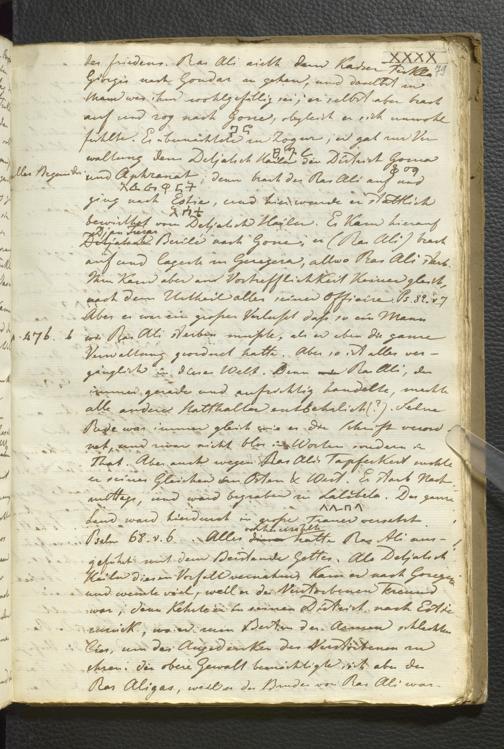 XXXX
79
des friedens. Ras Ali rieth dem Kaiser Tekla
Giorgis nach Gondar zu gehen, und daselbst zu
was ihm wohlgefällig sei; er selbst aber brach
auf und zog nach Gorre, obgleich er sich unwohl
fühlte. Er übernachtete in er gab zur Ver
waltung dem Detjatsch Hailu den District Gouna
und dann brach der Ras Ali auf und
ging nach Estie, und hier wurde er stattlich
bewirthet vom Detjatsch Hailu. Er kam hierauf
nach Gorre, er (Ras Ali) brach
auf und lagerte in allwo Ras Ali starb.
Ihm kam aber an Vortrefflichkeit keiner gleich,
nach dem Urtheil aller seiner Officiere. Ps. 82. v 7
Aber es war ein großer Verlust daß so ein Mann
wie Ras Ali sterben mußte, als er eben die ganze
476. b
Verwaltung geordnet hatte. Aber so ist alles ver-
gänglich in dieser Welt. Denn Ras Ali, der
immer gerade und aufrichtig handelte, machte
alle andere Statthalter entbehrlich (?). Seine
Rede war immer gleich wie es die Schrift verord
net, und zwar nicht blos in Worten sondern in
That. Aber auch wegen Ras Ali Tapferkeit suchte
er seines Gleichen in Osten & West. Er starb Nach-
mittags, und ward begraben in Lalibela. Das ganze
ላሊበላ
Land ward hierdurch in große Trauer versetzt
Psalm 68. v. 6. Alles hatte Ras Ali aus-
geführt mit dem Beistande Gottes. Als Detjatsch
Hailu diesen Vorfall vernahm kam er nach
und weinte viel, weil er des Verstorbenen Freund
war, dann kehrte er in seinen District nach Estie
zurück, wo er zum Besten der Armen schlachten
lies, um das Angedenken des Verstorbenen zu
ehren. der obere Gewalt bemächtigte sich aber der
Ras Aligas, weil er der Bruder von Ras Ali war.